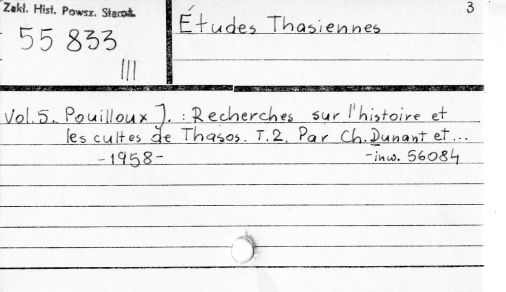 Zakł. Hist. Powsz. Staroż.
3
Études Thasiennes
55 833
III
Vol. 5. Pouilloux J. : Recherches sur l'histoire et
les cultes de Thasos. T. 2. Par Ch. Dunant et...
-1958- -inw. 56084